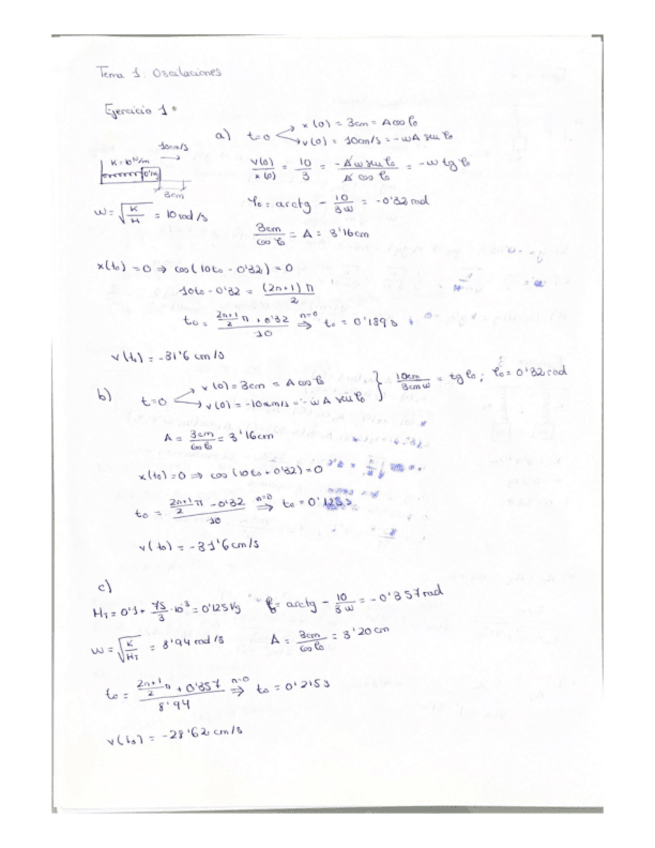 Tema 1: Oscilaciones
Ejercicio 1.
a) t=0 x(0) = 3cm = A cos φ₀
v(0) = 10cm/s = -ωA sen φ₀
10cm/s
K=10 N/m
3cm
v(0)/x(0) = 10/3 = -Aω sen φ₀ / A cos φ₀ = -ω tg φ₀
φ₀ = arctg - 10/3ω = -0'32 rad
ω = √(K/M) = 10 rad/s
3cm/cos φ₀ = A = 3'16cm
x(t₀) = 0 ⇒ cos(10t₀ - 0'32) = 0
10t₀ - 0'32 = (2n+1)π/2
t₀ = ((2n+1)/2 π + 0'32)/10 n=0 ⇒ t₀ = 0'189s
v(t₀) = -31'6 cm/s
b) t=0 x(0) = 3cm = A cos φ₀
v(0) = -10cm/s = -ωA sen φ₀ } 10cm/3cmω = tg φ₀; φ₀ = 0'32rad
A = 3cm/cos φ₀ = 3'16cm
x(t₀) = 0 ⇒ cos(10t₀ + 0'32) = 0
t₀ = ((2n+1)/2 π - 0'32)/10 n=0 ⇒ t₀ = 0'125s
v(t₀) = -31'6cm/s
c)
M_T = 0'1 + 75/3 · 10³ = 0'125 Kg φ₀ = arctg - 10/3ω = -0'357rad
ω = √(K/M_T) = 8'94 rad/s A = 3cm/cos φ₀ = 3'20cm
t₀ = ((2n+1)/2 π + 0'357)/8'94 n=0 ⇒ t₀ = 0'215s
v(t₀) = -28'62 cm/s